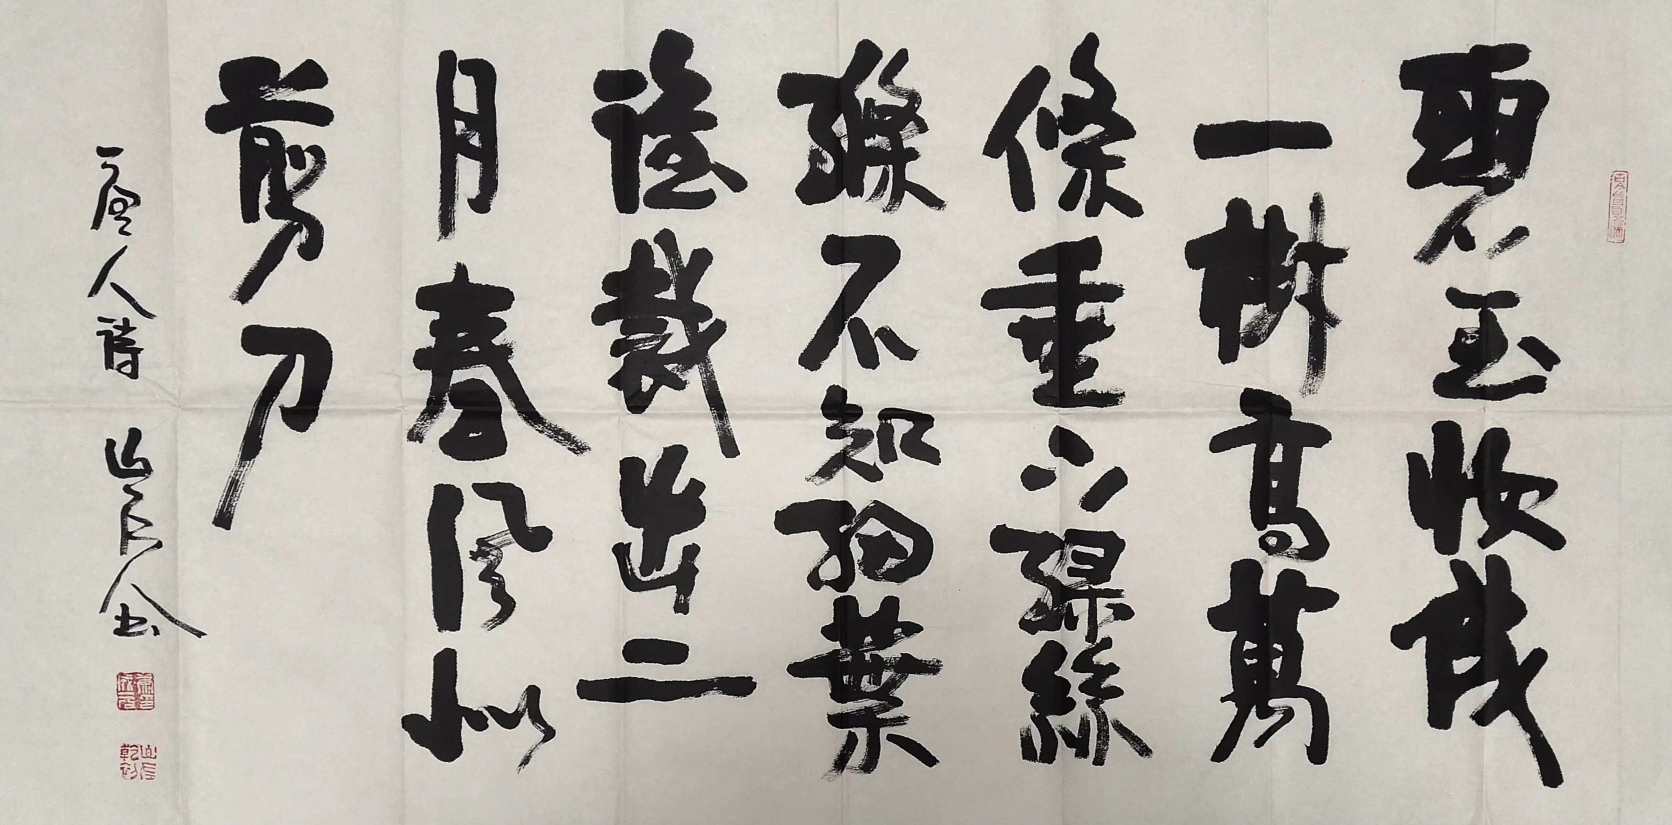 碧玉妝成
一樹高萬
條垂下綠絲
縧不知細葉
誰裁出二
月春風似
剪刀
唐人詩